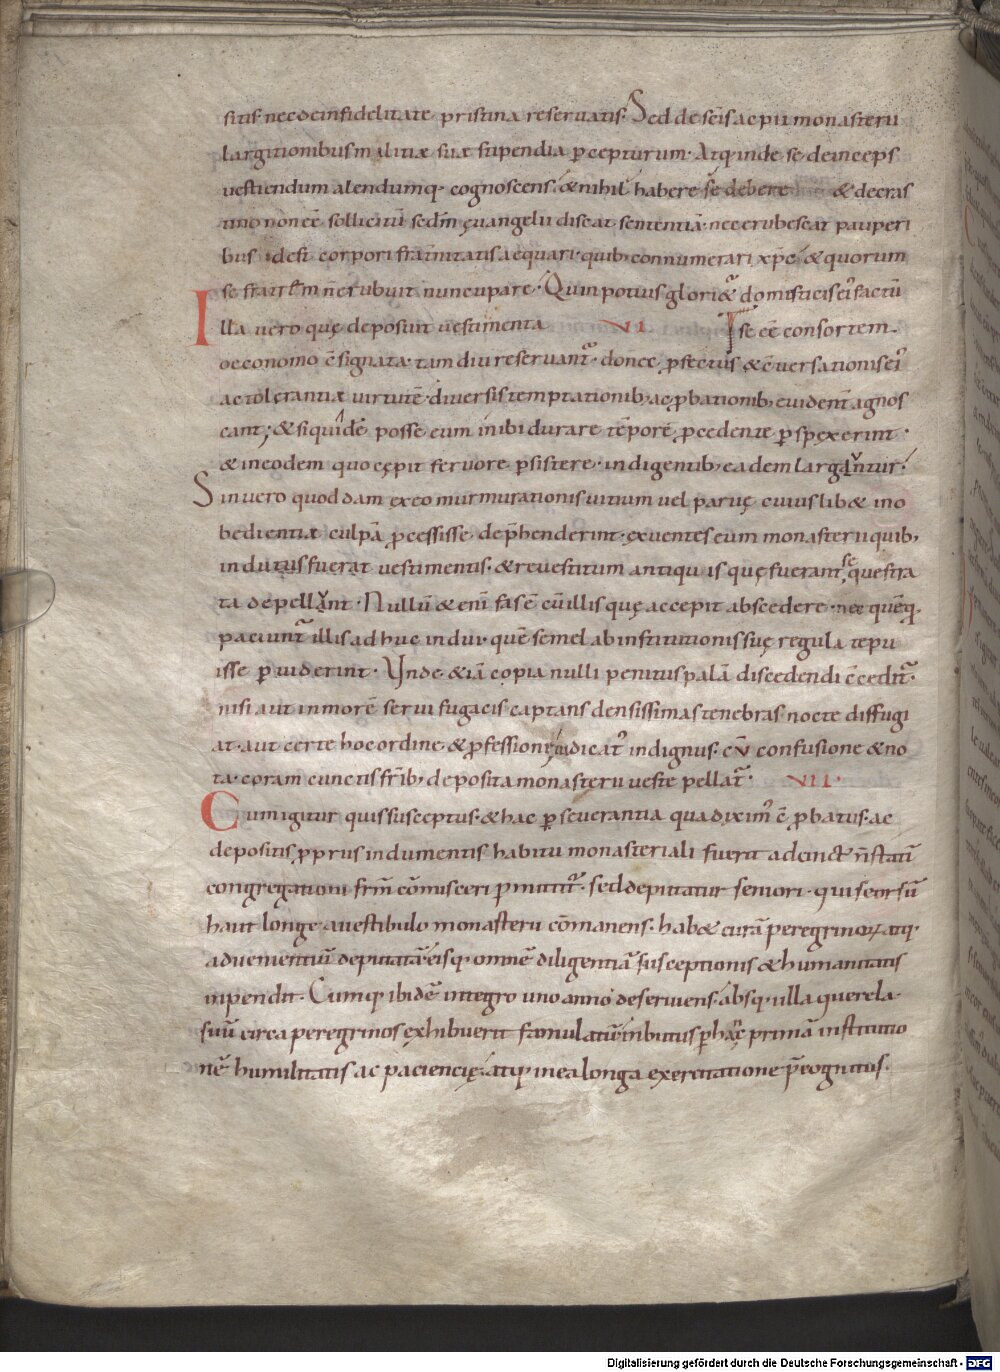 sitis nec de infidelitate pristina reseruatis. Sed de scis ac pii monasterii
largitionibus militiæ suæ stipendia pcepturum. Atq; inde se deinceps
uestiendum alendumq; cognoscens. & nihil habere se debere & de cras
tino non eē sollicitū scdm ęuangelii discat sententiā. nec erubescat pauperi
bus idest corpori fraternitatis aequari. quib; connumerari xpc & quorum
se fratrem n̄ erubuit nuncupare. Quin potius gloriet̄ domisticis ei' factū
Illa uero quę deposuit uestimenta VI se eē consortem.
oeconomo cōsignata tam diu reseruant̄. donec pfectus & cōuersationis ei'
ac tolerantiæ uirtutē diuersis temptationib; ac pbationib; euident agnos
cant; & siquidē posse eum inibi durare tēpore pcedente pspexerint.
& in eodem quo cępit feruore psistere. indigentib; eadem largiuntur.
Sin uero quoddam ex eo murmurationis uitium uel paruę cuiuslib& ino
bedientiæ culpā pcessisse dephenderint. exuentes eum monasterii quib;
indutus fuerat uestimentis. & reuestitum antiquis quę fuerant sequestra
ta depellunt. Nullū & enī fas ē cū illis quę accepit abscedere. nec quēq;
paciunt̄ illis adhuc indui. quē semel ab institutionis suę regula tepu
isse puiderint. Unde & iā copia nulli penitus palā discedendi cōcedit̄.
nisi aut in morē serui fugacis captans densissimas tenebras nocte diffugi
at. aut certe hoc ordine & pfessione iudicat' indignus. cū confusione & no
ta. coram cunctis frīb; deposita monasterii ueste pellat̄. VII.
Cum igitur quis susceptus. & hac pseuerantia qua dixim' ē pbatus. ac
depositis pprus indumentis habitu monasteriali fuerit adcinct' n̄ statī
congregationi frm cōmisceri pmittit'. sed deputatur seniori. qui seorsū
haut longe a uestibulo monasterii cōmanens. hab& curā peregrinorum atq;
aduenientiū deputatā. eisq; omnē diligentiā susceptionis & humanitatis
inpendit. Cumq; ibidē integro uno anno deseruiens. absq; ulla querela.
suū circa peregrinos exhibuerit famulatū. inbutus p hāc primā institutio
nē humilitatis ac paciencię. atq; in ea longa exercitatione p̄cognitus.
Digitalisierung gefördert durch die Deutsche Forschungsgemeinschaft - DFG